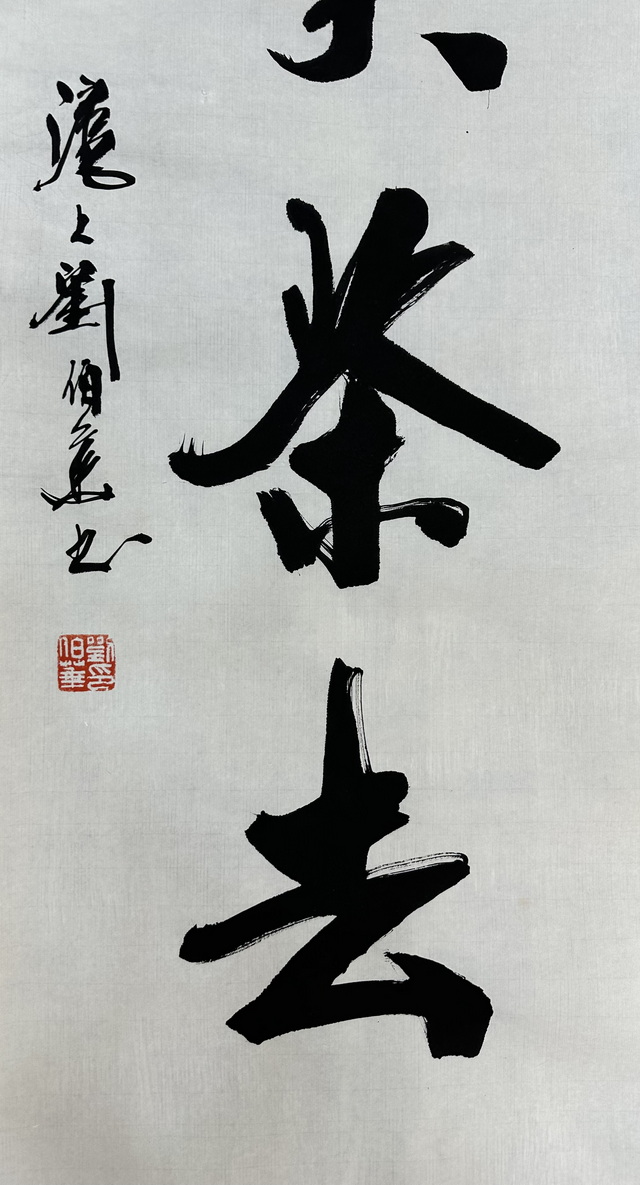 茶去
滬上劉伯華书
劉印
伯華